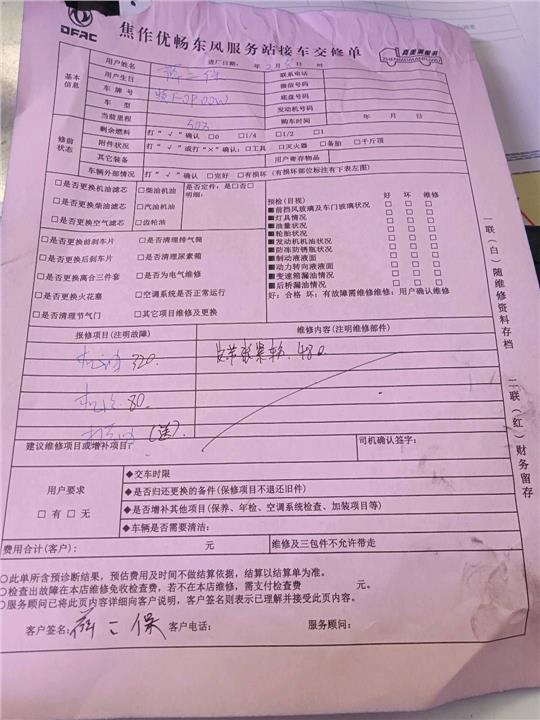 DFAC
焦作优畅东风服务站接车交修单
真里真面服务
ZHENLIZHENMIANFUWU
基本信息
用户姓名
进厂日期: 年 2月 日 时
用户生日
联系电话
车牌号
微信号码
车型
底盘号码
当前里程
发动机号码
503
购车时间 年 月 日
修前状态
剩余燃料 打“√”确认 □0 □1/4 □1/2 □1
附件状况 打“√”或打“×”确认:□工具 □灭火器 □备胎 □千斤顶
其它装备 用户寄存物品
车辆外部情况 打“√”确认 □完好 □有损坏 (有损坏部位标注有下表左图)
□是否更换机油滤芯 □柴油机油 是否定件: 是□否□
□是否更换柴油滤芯 □汽油机油 明细:
□是否更换空气滤芯 □齿轮油
□是否更换前刹车片 □是否清理排气筒
□是否更换后刹车片 □是否清理尿素箱
□是否更换离合三件套 □是否为电气维修
□是否更换火花塞 □空调系统是否正常运行
□是否清理节气门 □其它项目维修及更换
预检(目视) 好 坏 维修
■前挡风玻璃及车门玻璃状况 □ □ □
■灯具情况 □ □ □
■油量状况 □ □ □
■轮胎状况 □ □ □
■发动机机油状况 □ □ □
■防冻防锈瓶状况 □ □ □
■制动液液面 □ □ □
■动力转向液液面 □ □ □
■变速箱漏油情况 □ □ □
■后桥漏油情况 □ □ □
好: 合格 坏: 有故障需维修维修: 用户确认维修
报修项目(注明故障) 维修内容(注明维修部件)
320. 皮带张紧轮. 480.
80.
(送).
建议维修项目或增补项目: 司机确认签字:
用户要求
□ 有 □ 无
◆交车时限
◆是否归还更换的备件(保修项目不退还旧件)
◆是否增补其他项目(保养、年检、空调系统检查、加装项目等)
◆车辆是否需要清洁:
费用合计(客户): 元 维修及三包件不允许带走
○此单所含预诊断结果,预估费用及时间不做结算依据,结算以结算单为准。
○检查出故障在本店维修免收检查费,若不在本店维修,需支付检查费 元。
○服务顾问已将此页内容详细向客户说明,客户签名则表示已理解并接受此页内容。
客户签名: 二保 客户电话: 服务顾问:
一联(白)随维修资料存档
二联(红)财务留存